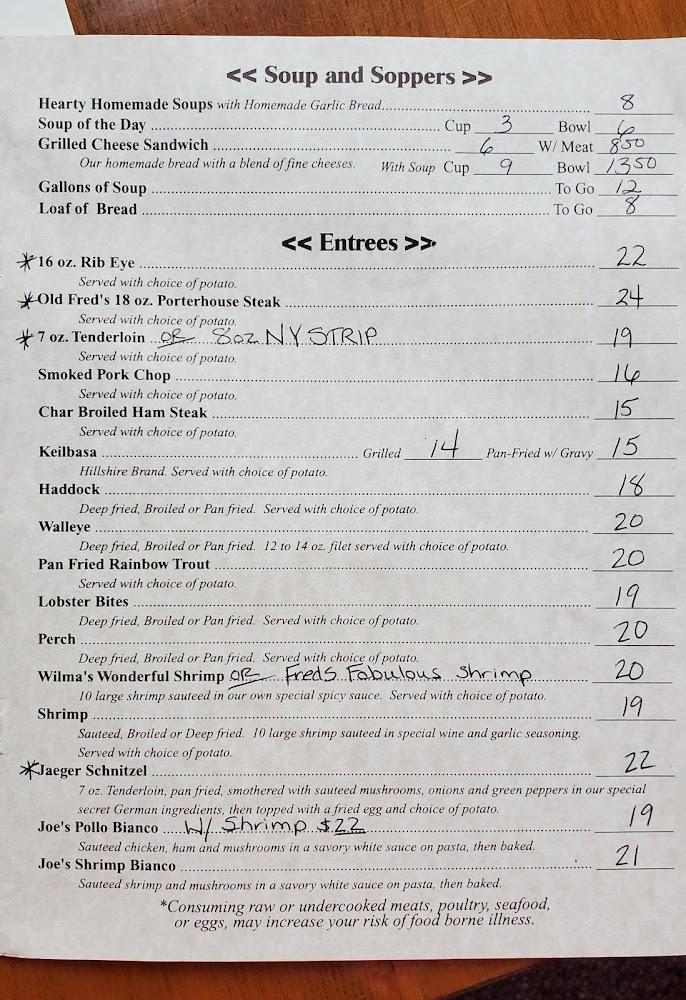 << Soup and Soppers >>
Hearty Homemade Soups with Homemade Garlic Bread 8
Soup of the Day Cup 3 Bowl 6
Grilled Cheese Sandwich 6 W/ Meat 8.50
Our homemade bread with a blend of fine cheeses. With Soup Cup 9 Bowl 13.50
Gallons of Soup To Go 12
Loaf of Bread To Go 8
<< Entrees >>
*16 oz. Rib Eye 22
Served with choice of potato.
*Old Fred's 18 oz. Porterhouse Steak 24
Served with choice of potato.
*7 oz. Tenderloin OR 8oz NY STRIP 19
Served with choice of potato.
Smoked Pork Chop 16
Served with choice of potato.
Char Broiled Ham Steak 15
Served with choice of potato.
Keilbasa Grilled 14 Pan-Fried w/ Gravy 15
Hillshire Brand. Served with choice of potato.
Haddock 18
Deep fried, Broiled or Pan fried. Served with choice of potato.
Walleye 20
Deep fried, Broiled or Pan fried. 12 to 14 oz. filet served with choice of potato.
Pan Fried Rainbow Trout 20
Served with choice of potato.
Lobster Bites 19
Deep fried, Broiled or Pan fried. Served with choice of potato.
Perch 20
Deep fried, Broiled or Pan fried. Served with choice of potato.
Wilma's Wonderful Shrimp OR Freds Fabulous Shrimp 20
10 large shrimp sauteed in our own special spicy sauce. Served with choice of potato.
Shrimp 19
Sauteed, Broiled or Deep fried. 10 large shrimp sauteed in special wine and garlic seasoning.
Served with choice of potato.
*Jaeger Schnitzel 22
7 oz. Tenderloin, pan fried, smothered with sauteed mushrooms, onions and green peppers in our special
secret German ingredients, then topped with a fried egg and choice of potato.
Joe's Pollo Bianco W/ Shrimp $22 19
Sauteed chicken, ham and mushrooms in a savory white sauce on pasta, then baked.
Joe's Shrimp Bianco 21
Sauteed shrimp and mushrooms in a savory white sauce on pasta, then baked.
*Consuming raw or undercooked meats, poultry, seafood,
or eggs, may increase your risk of food borne illness.